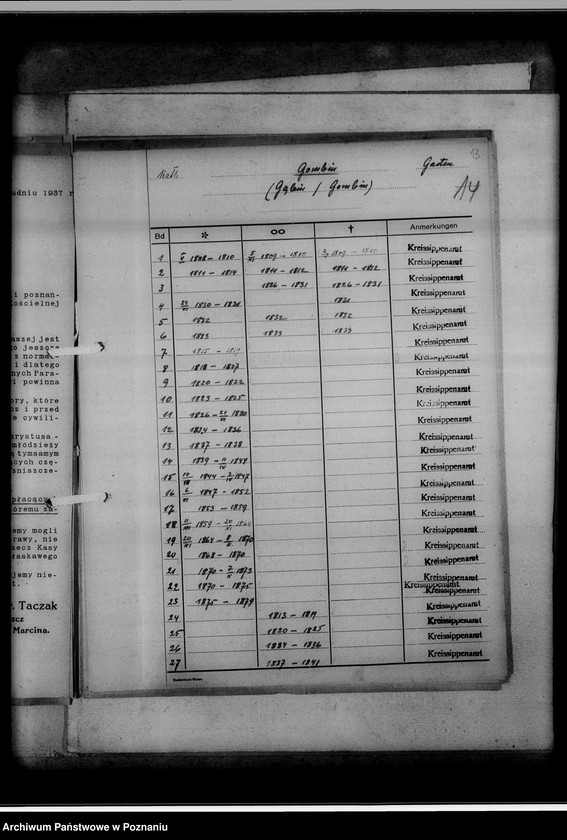 udniu 1937 r
i poznań-
ościelnej
aszej jest
o jeszcze
z normaln
i dlatego
nych Para-
i powinna
ory, które
oz i przed
e cywili-
rystusa -
młodzieży
tymsamym
ących czę-
śniaszcze-
płacący
óremu za-
emy mogli
rawy, nie
rzecz Kasy
łaskawego
jemy nie-
t.
. Taczak
szcz
Marcina.
13
Kath. Gombin Gasten
(Gąbin / Gombin) A4
Bd * ∞ † Anmerkungen
1 1/V 1808 – 1810 1809 – 1810 1809 – 1810 Kreissippenamt
2 1811 – 1814 1811 – 1812 1811 – 1812 Kreissippenamt
3 1826 – 1831 1826 – 1831 Kreissippenamt
4 1830 – 1831 1831 Kreissippenamt
5 1832 1832 1832 Kreissippenamt
6 1833 1833 1833 Kreissippenamt
7 1815 – 1817 Kreissippenamt
8 1818 – 1827 Kreissippenamt
9 1820 – 1822 Kreissippenamt
10 1823 – 1825 Kreissippenamt
11 1826 – 1830 Kreissippenamt
12 1834 – 1836 Kreissippenamt
13 1837 – 1838 Kreissippenamt
14 1839 – 1844 Kreissippenamt
15 1844 – 1847 Kreissippenamt
16 6/VI 1847 – 1852 Kreissippenamt
17 1853 – 1859 Kreissippenamt
18 1859 – 20/XI 1864 Kreissippenamt
19 20/XI 1864 – 1870 Kreissippenamt
20 1868 – 1870 Kreissippenamt
21 1870 – 7/X 1873 Kreissippenamt
22 1870 – 1875 Kreissippenamt
23 1875 – 1879 Kreissippenamt
24 1813 – 1819 Kreissippenamt
25 1820 – 1825 Kreissippenamt
26 1834 – 1836 Kreissippenamt
27 1837 – 1841 Kreissippenamt
Archiwum Państwowe w Poznaniu